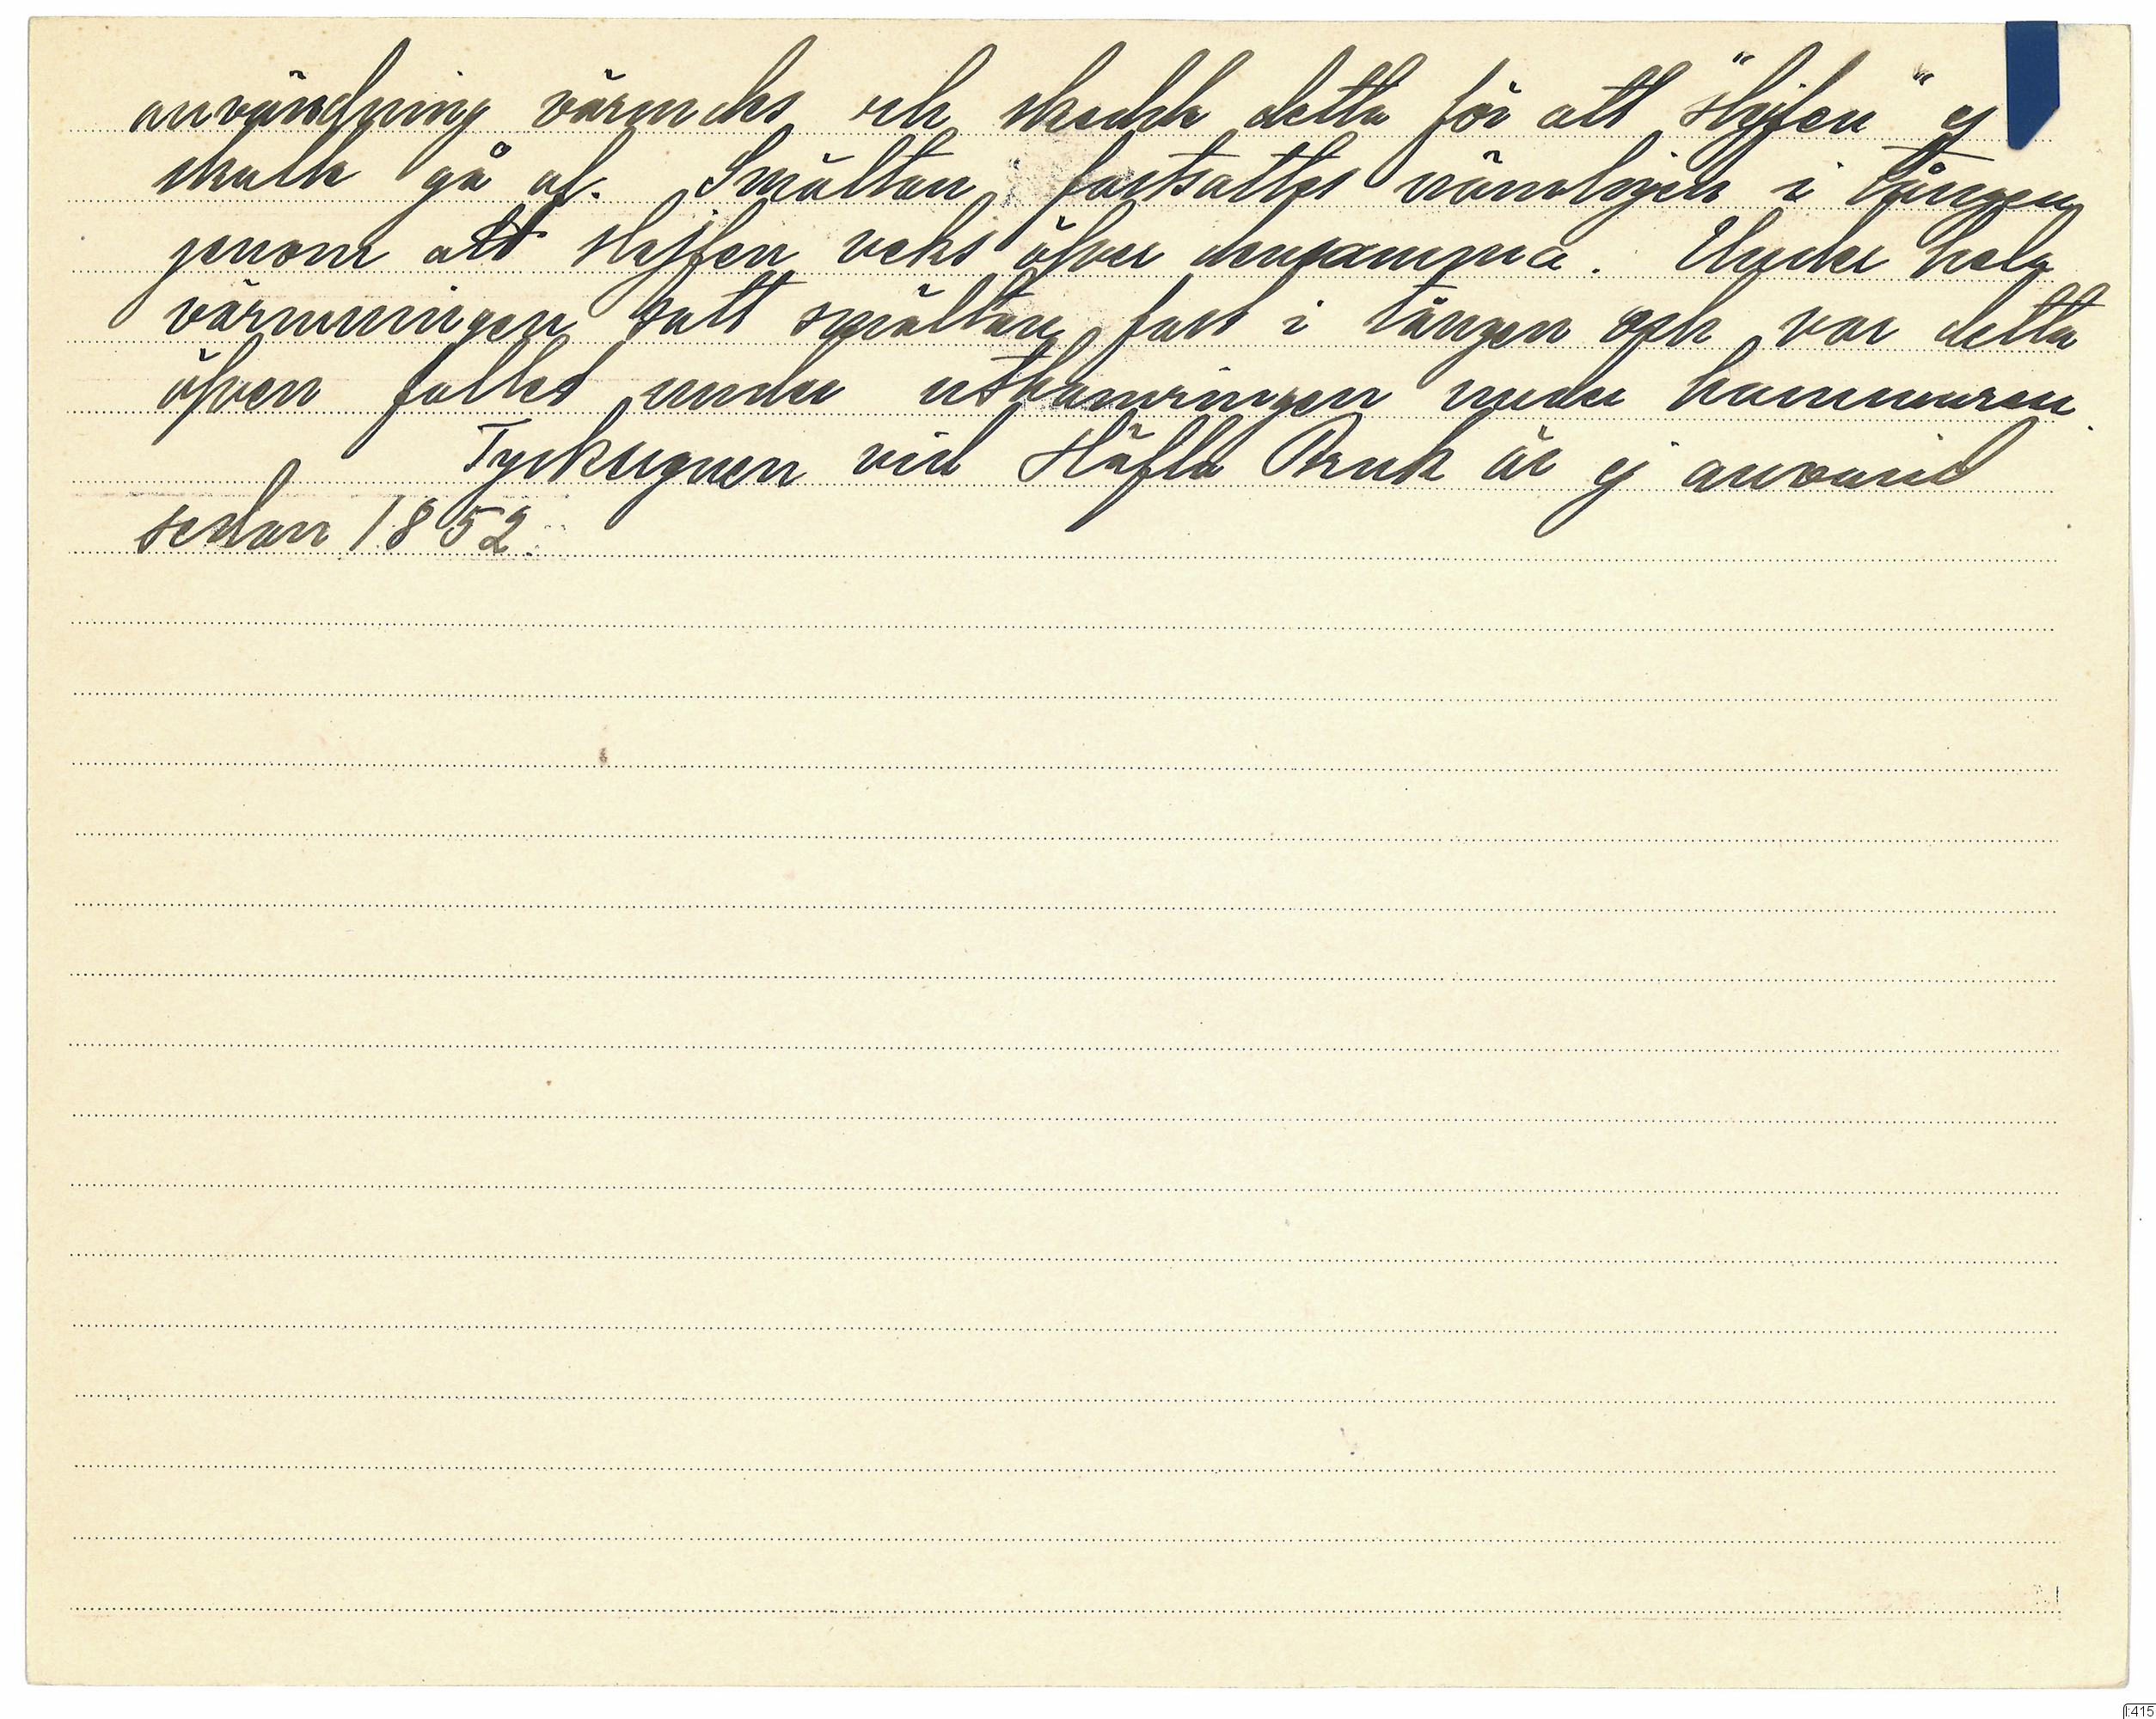 användning värmdes och skedde detta för att "slejfen" ej
skulle gå af. Smältan fastsattes nämligen i tången
genom att slejfen veks öfver densamma. Under hela
värmningen satt smältan fast i tången och var detta
äfven fallet under uthamringen under hammaren.
Tyskugnen vid Häfla Bruk är ej använd
sedan 1852.
I:415